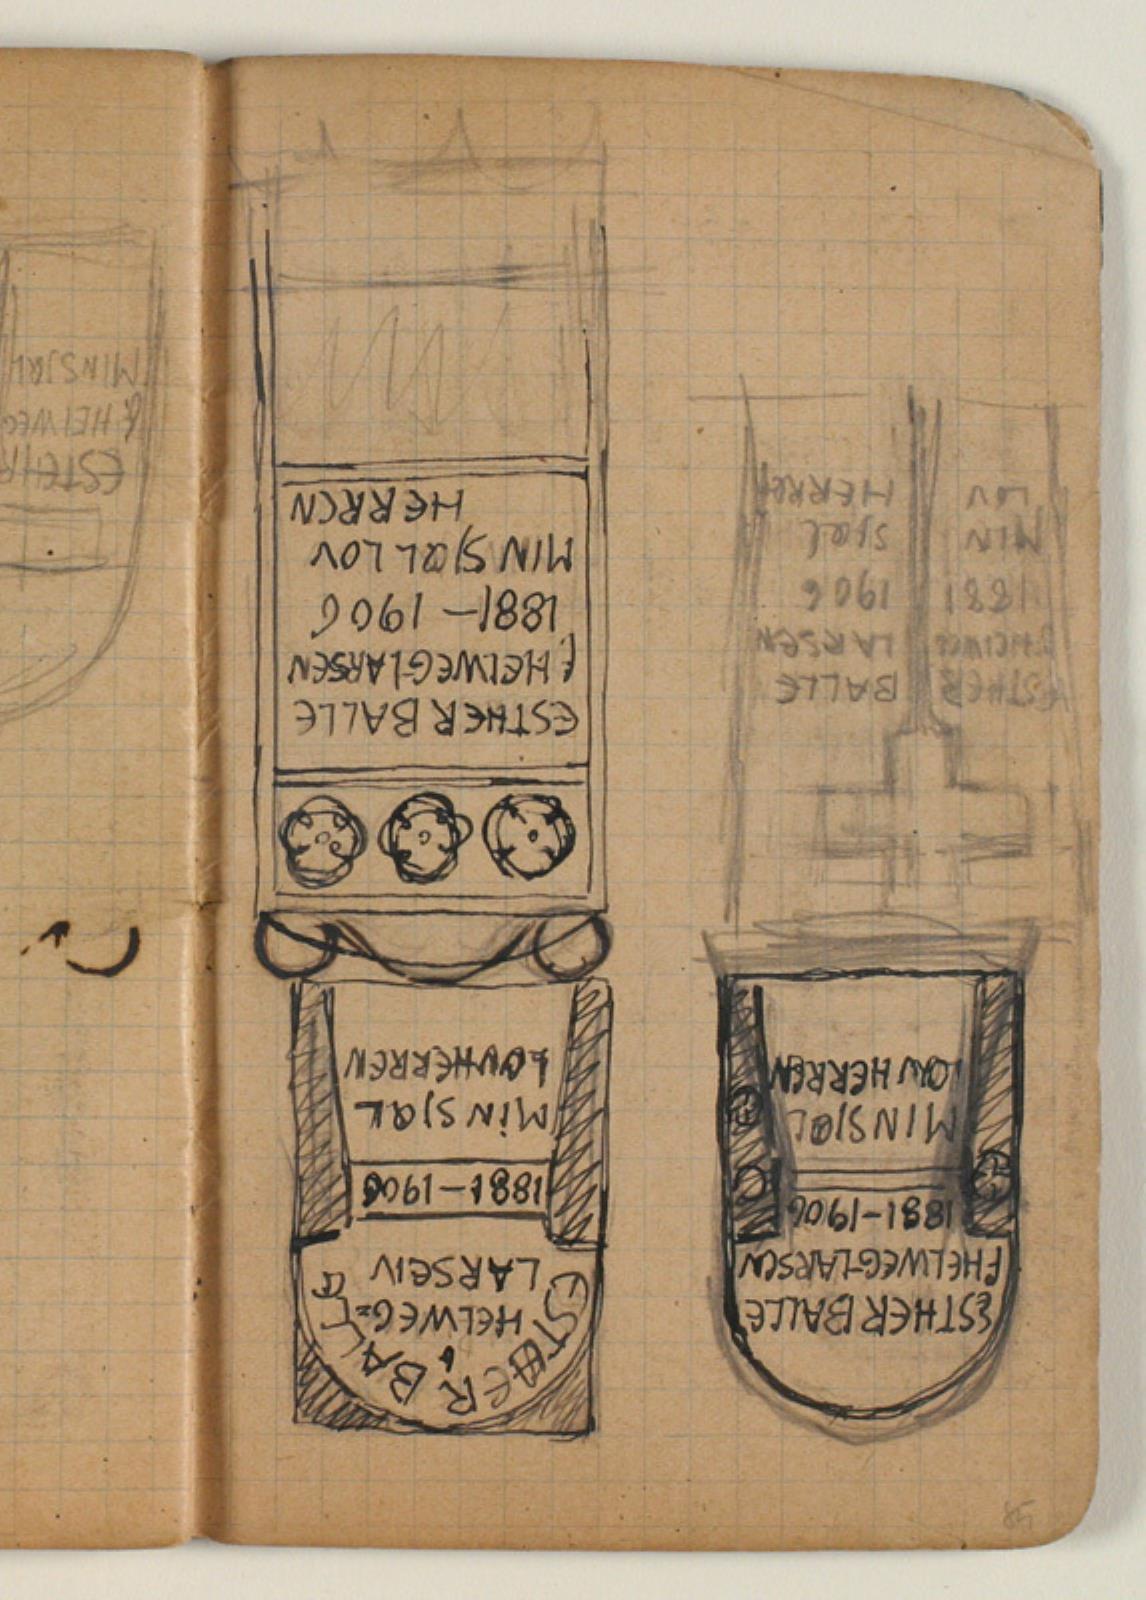 ESTHER BALLE
F HELWEG-LARSEN
1881-1906
MIN SJÆL
LOV HERREN
ESTHER BALLE
F HELWEG LARSEN
1881 1906
MIN SJÆL
LOV HERREN
ESTHER BALLE
F
HELWEG=
LARSEN
1881-1906
MIN SJÆL
LOV HERREN
ESTHER BALLE
F HELWEG-LARSEN
1881-1906
MIN SJÆL LOV
HERREN
F HELWEG
MIN SJÆL